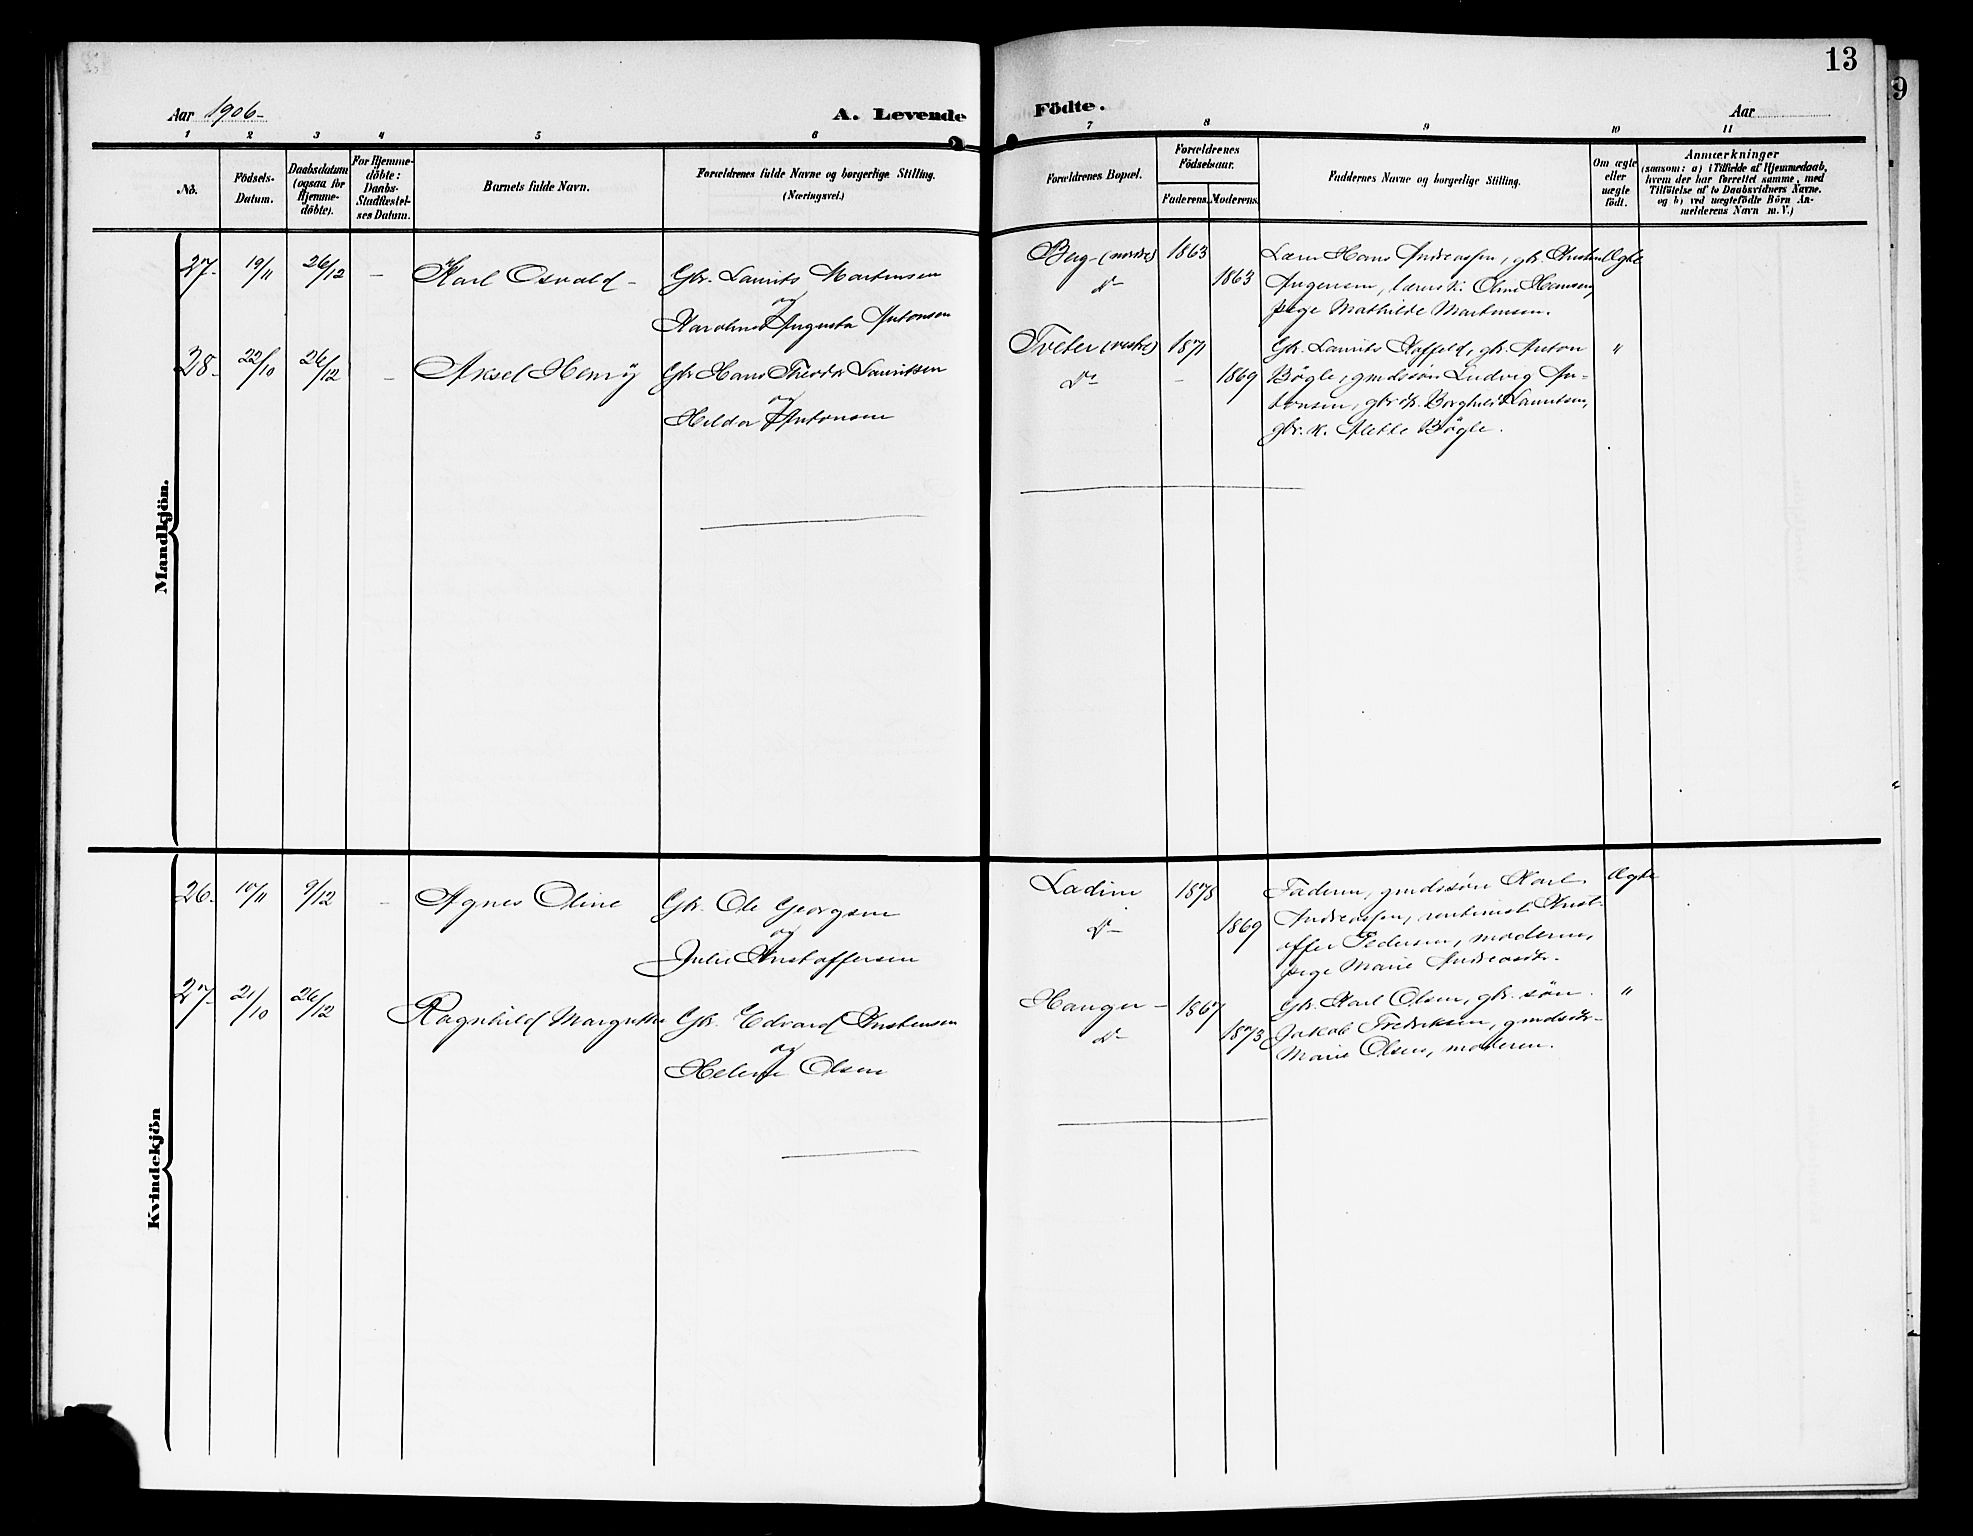 13
9
Aar 1906-
A. Levende Födte.
Aar
1 2 3 4 5 6 7 8 9 10 11
No.
Födsels-
Datum.
Daabsdatum
(ogsaa for
Hjemme-
döbte).
For Hjemme-
döbte:
Daabs-
Stadfæstel-
ses Datum.
Barnets fulde Navn.
Forældrenes fulde Navne og borgerlige Stilling.
(Næringsvei.)
Forældrenes Bopæl.
Forældrenes
Födselsaar.
Faderens. Moderens.
Faddernes Navne og borgerlige Stilling.
Om ægte
eller
uægte
födt.
Anmærkninger
(saasom: a) i Tilfælde af Hjemmedaab,
hvem der har forrettet samme, med
Tilföielse af to Daabsvidners Navne.
og b) ved uægtefödte Börn An-
melderens Navn m. V.)
Mandkjön.
27. 19/11 26/12 - Karl Osvald - Gbr. Laurits Martinsen
og
Karoline Augusta Antonsen
Berg (nordre) 1863
do 1863
Hans Andreassen, gbr. Kristen
Mathilde Martinsen.
Ægte
28. 22/10 26/12 - Aksel Henrÿ Gbr Hans Theodor Lauritsen
og
Hilda Antonsen
Tveter (vestre) 1871
do - 1869
Gbr. Laurits Hoffeld, gbr. Anton
Bøgle, gmdssøn Ludvig An-
tonsen, gbr.k. Borghild Lauritsen,
gbr. k. Alette Bøgle.
"
Kvindekjön
26. 10/11 9/12 - Agnes Oline Gbr. Ole Georgsen
og
Julie Kristoffersen
Ladim 1878
do 1869
Faderen, gmdssøn Karl
Andreassen, Krist-
offer Pedersen, moderen,
pige Marie Andreasdtr.
Ægte
27. 21/10 26/12 Ragnhild Margrethe Gbr. Edvard Kristensen
og
Helene Olsen
Hauger - 1867
do 1873
Gbr. Karl Olsen, gbr. søn
Jakob Fredriksen, gmdsdtr.
Marie Olsen, moderen.
"